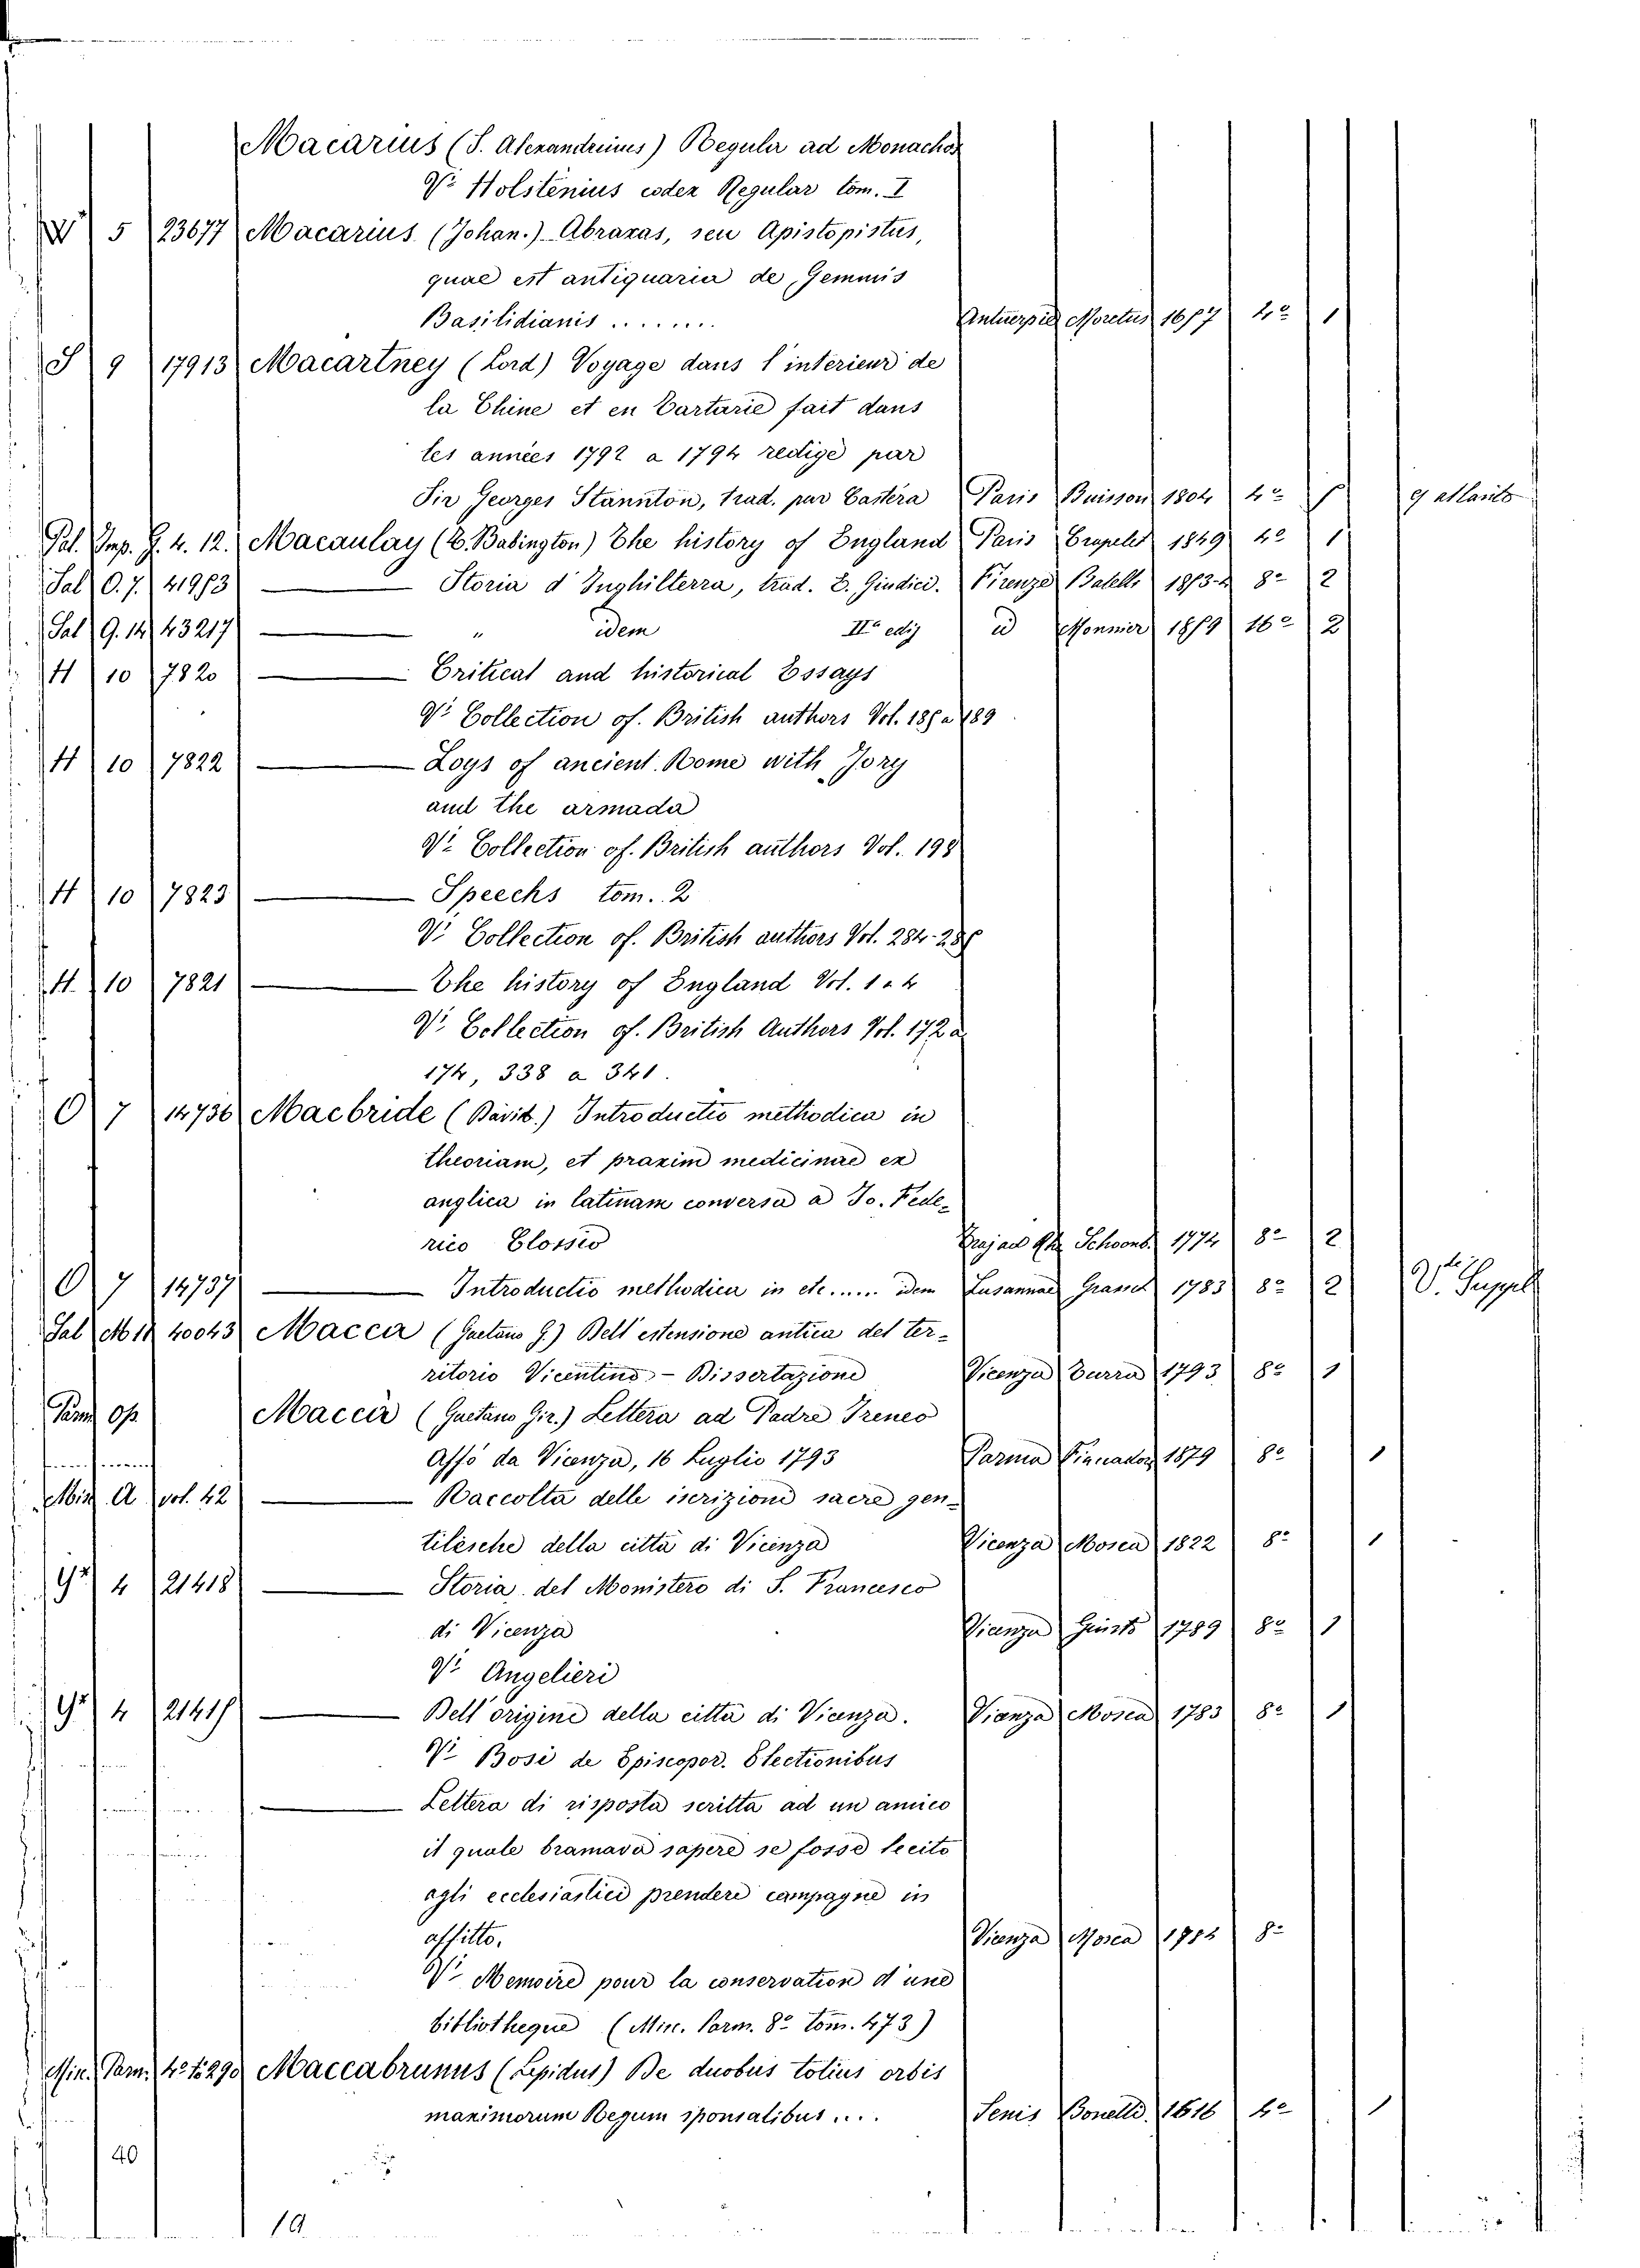 Macarius (S. Alexandrinus) Regular ad Monachos
V.e Holstenius codex Regular tom. I
W 5 23677 Macarius (Johan.) Abraxas, seu Apistopistus,
quae est antiquaria de Gemmis
Basilidianis ....... Antuerpiae Moretus 1657 4.o 1
S 9 17913 Macartney (Lord) Voyage dans l'intérieur de
la Chine et en Tartarie fait dans
les années 1792 a 1794 redigé par
Sir Georges Stannton, trad. par Castera Paris Buisson 1804 4.o 5 g atlante
Pal. Imp. G. 4. 12. Macaulay (T. Babington) The history of England Paris Crapelet 1849 4.o 1
Sal O. 7. 41953 — Storia d'Inghilterra, trad. E. Giudici. Firenze Batelli 1853-4 8.o 2
Sal G. 14 43217 — " idem II.a ediz id Monnier 1859 16.o 2
H 10 7820 — Critical and historical Essays
V.e Collection of. British authors Vol. 185 a 189
H 10 7822 — Loys of ancient Rome with Jory
and the armada
V.e Collection of. British authors Vol. 198
H 10 7823 — Speechs tom. 2
V.e Collection of. British authors Vol. 284-285
H. 10 7821 — The history of England Vol. 1 a 4
V.e Collection of. British Authors Vol. 172 a
174, 338 a 341.
O 7 14736 Macbride (David.) Introductio methodica in
theoriam, et praxim medicinae ex
anglica in latinam conversa a Jo. Fede-
rico Clossio Trajan Rh. Schoonh. 1774 8.o 2
O 7 14737 — Introductio methodica in etc...... idem Lusannae Grasset 1783 8.o 2 V.e Suppel
Sal M 14 40043 Macca (Gaetano G.) Dell'estensione antica del ter-
ritorio Vicentino - Dissertazione Vicenza Turra 1793 8.o 1
Parm Op. Macca (Gaetano Gir.) Lettera ad Padre Ireneo
Affò da Vicenza, 16 Luglio 1793 Parma Fiaccadori 1879 8.o 1
Misc. A vol. 42 — Raccolta delle iscrizioni sacre gen-
tilesche della città di Vicenza Vicenza Mosca 1822 8.o 1
G.2 4 21418 — Storia del Monistero di S. Francesco
di Vicenza Vicenza Giusto 1789 8.o 1
V.e Angelieri
G.2 4 21417 — Dell'origine della città di Vicenza. Vicenza Mosca 1783 8.o 1
V.e Bosi de Episcopor. Electionibus
— Lettera di risposta scritta ad un amico
il quale bramava sapere se fosse lecito
agli ecclesiastici prendere campagne in
affitto. Vicenza Mosca 1784 8.o
V.e Memoire pour la conservation d'une
bibliotheque (Misc. Parm. 8.o Tom. 473)
Misc. Parm. 4.o t. 290 Maccabrunus (Lepidus) De duobus totius orbis
maximorum Regum sponsalibus.... Senis Bonetti 1616 4.o 1
40
19